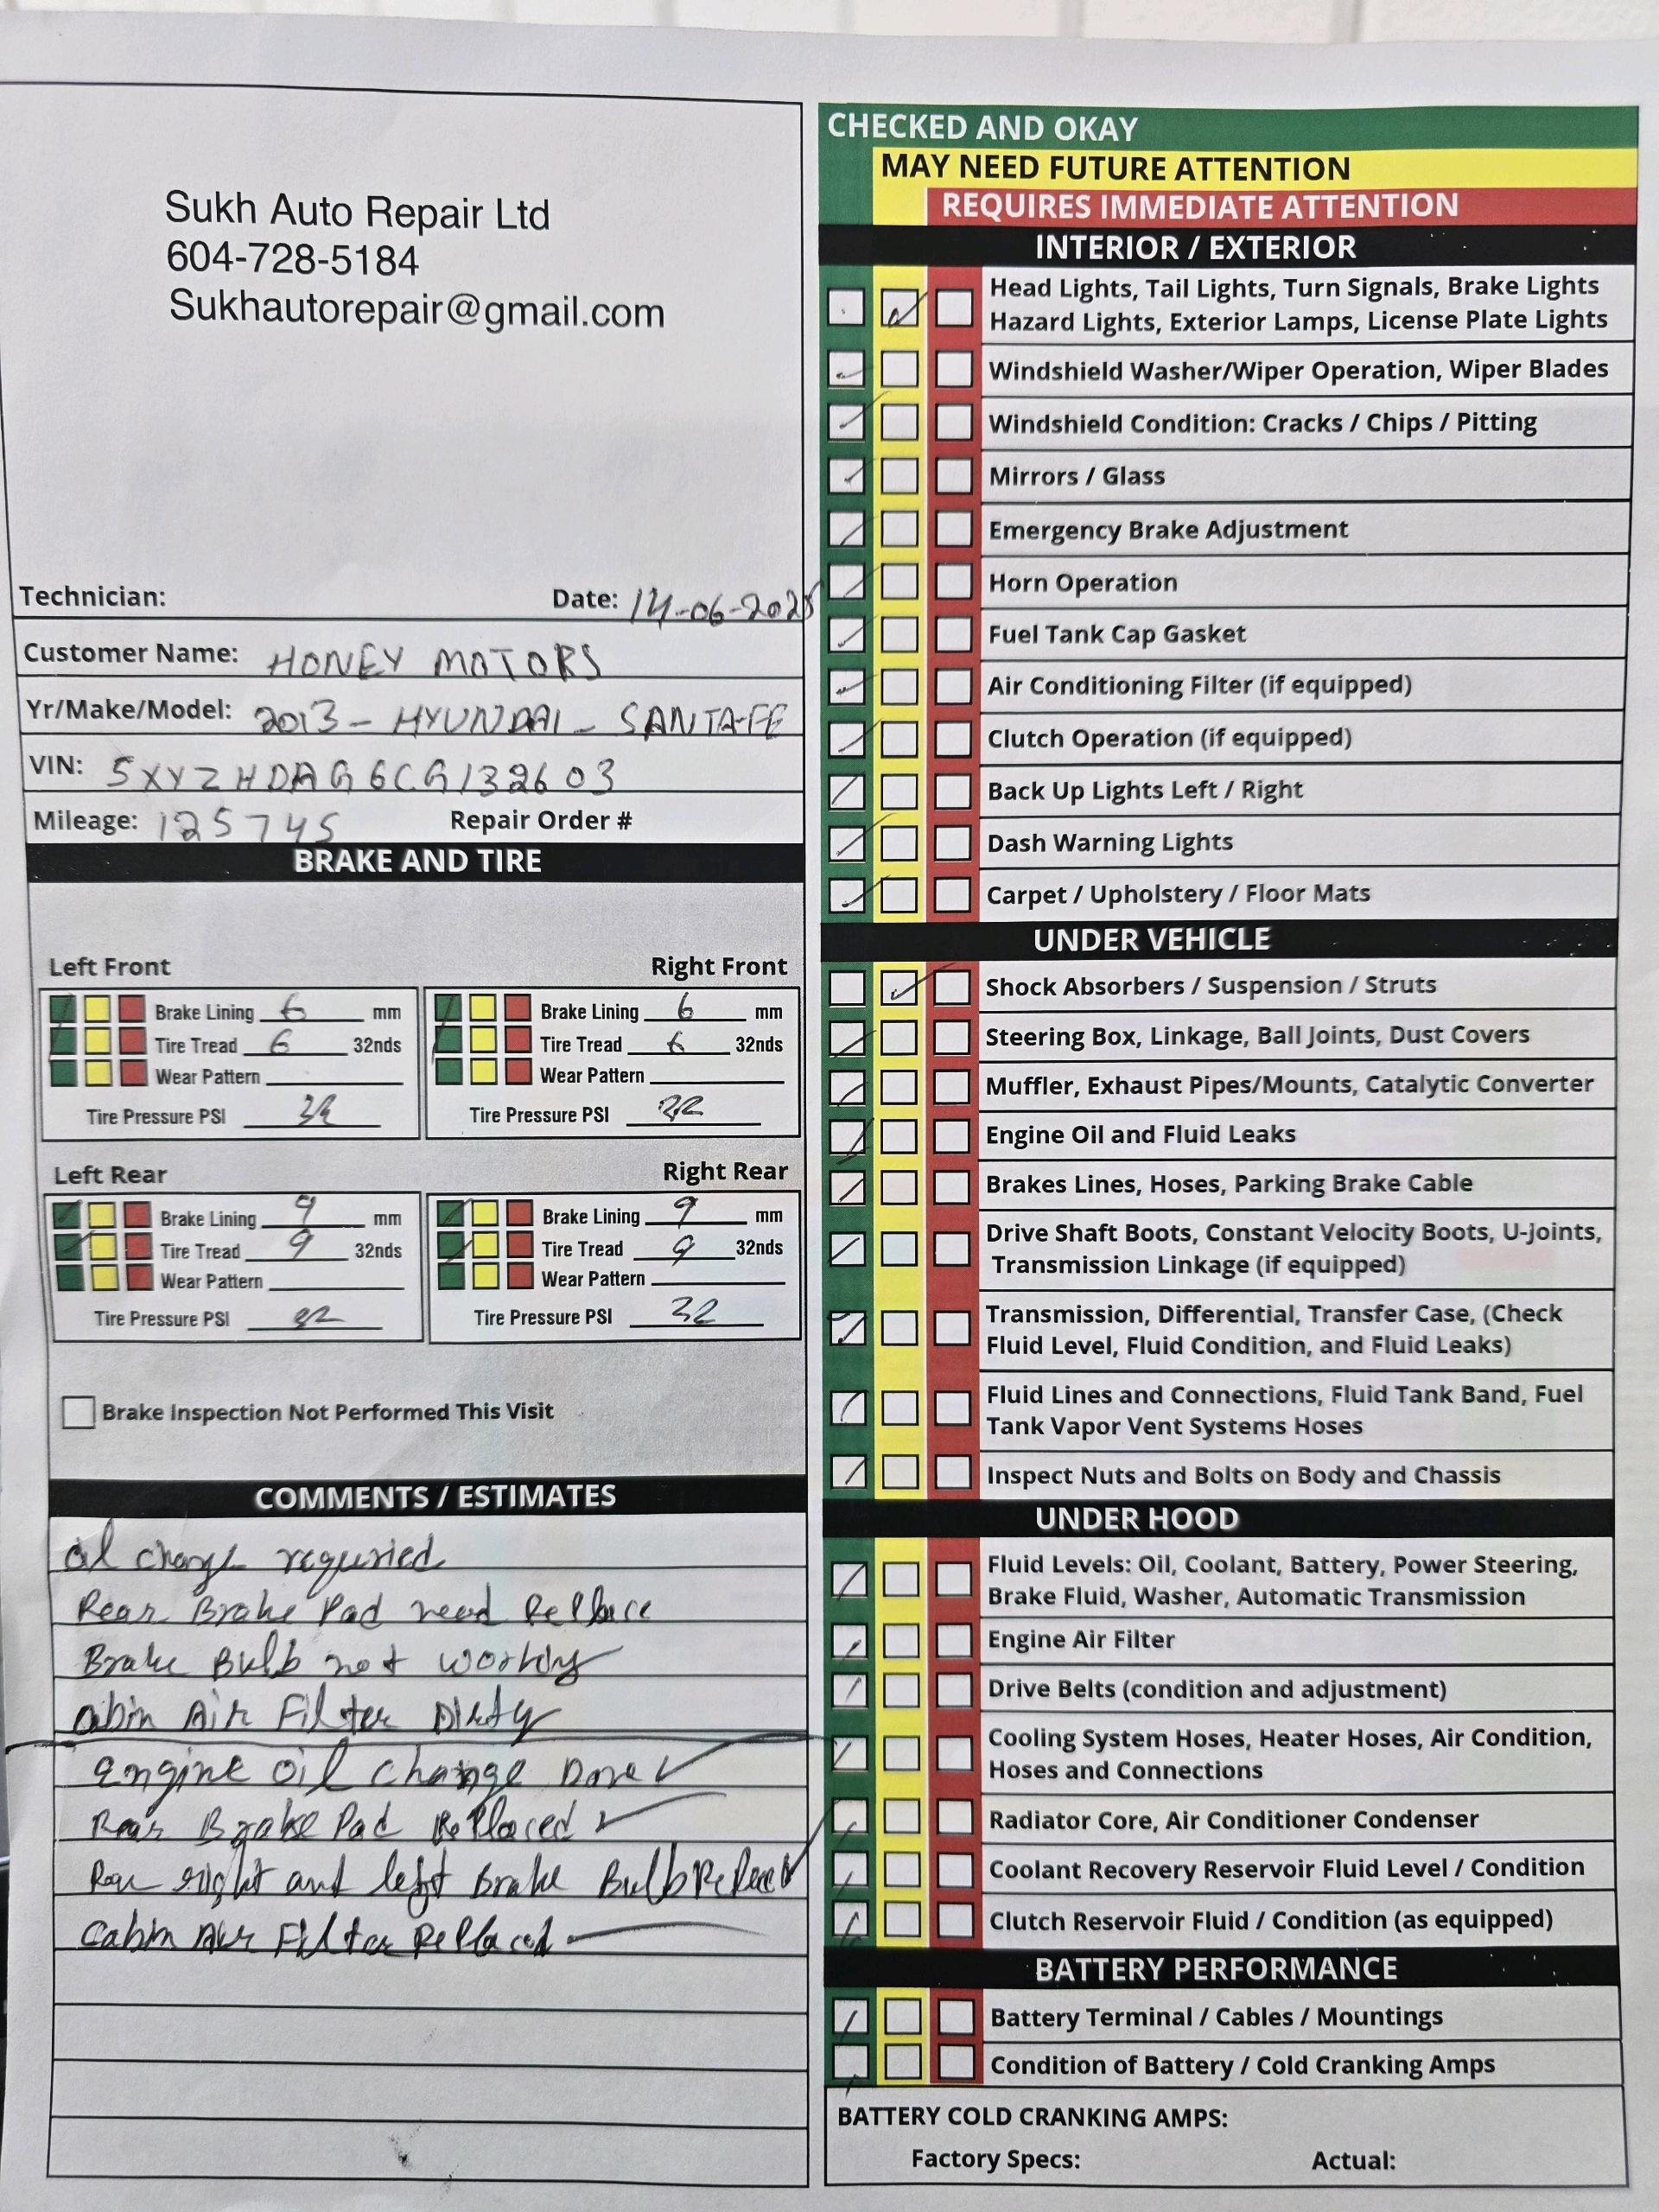 Sukh Auto Repair Ltd
604-728-5184
Sukhautorepair@gmail.com
Technician: Date: 14-06-2025
Customer Name: HONEY MOTORS
Yr/Make/Model: 2013 - HYUNDAI - SANTA-FE
VIN: 5XYZHDAG6CG132603
Mileage: 125745 Repair Order #
BRAKE AND TIRE
Left Front
Brake Lining 6 mm
Tire Tread 6 32nds
Wear Pattern
Tire Pressure PSI 32
Right Front
Brake Lining 6 mm
Tire Tread 6 32nds
Wear Pattern
Tire Pressure PSI 32
Left Rear
Brake Lining 9 mm
Tire Tread 9 32nds
Wear Pattern
Tire Pressure PSI 32
Right Rear
Brake Lining 9 mm
Tire Tread 9 32nds
Wear Pattern
Tire Pressure PSI 32
Brake Inspection Not Performed This Visit
COMMENTS / ESTIMATES
oil change requried
Rear Brake Pad need Replace
Brake Bulb not working
Cabin Air Filter Dirty
engine oil change Done ✓
Rear Brake Pad Replaced ✓
Rear right and left Brake Bulb
Cabin Air Filter Replaced
CHECKED AND OKAY
MAY NEED FUTURE ATTENTION
REQUIRES IMMEDIATE ATTENTION
INTERIOR / EXTERIOR
Head Lights, Tail Lights, Turn Signals, Brake Lights
Hazard Lights, Exterior Lamps, License Plate Lights
Windshield Washer/Wiper Operation, Wiper Blades
Windshield Condition: Cracks / Chips / Pitting
Mirrors / Glass
Emergency Brake Adjustment
Horn Operation
Fuel Tank Cap Gasket
Air Conditioning Filter (if equipped)
Clutch Operation (if equipped)
Back Up Lights Left / Right
Dash Warning Lights
Carpet / Upholstery / Floor Mats
UNDER VEHICLE
Shock Absorbers / Suspension / Struts
Steering Box, Linkage, Ball Joints, Dust Covers
Muffler, Exhaust Pipes/Mounts, Catalytic Converter
Engine Oil and Fluid Leaks
Brakes Lines, Hoses, Parking Brake Cable
Drive Shaft Boots, Constant Velocity Boots, U-Joints,
Transmission Linkage (if equipped)
Transmission, Differential, Transfer Case, (Check
Fluid Level, Fluid Condition, and Fluid Leaks)
Fluid Lines and Connections, Fluid Tank Band, Fuel
Tank Vapor Vent Systems Hoses
Inspect Nuts and Bolts on Body and Chassis
UNDER HOOD
Fluid Levels: Oil, Coolant, Battery, Power Steering,
Brake Fluid, Washer, Automatic Transmission
Engine Air Filter
Drive Belts (condition and adjustment)
Cooling System Hoses, Heater Hoses, Air Condition,
Hoses and Connections
Radiator Core, Air Conditioner Condenser
Coolant Recovery Reservoir Fluid Level / Condition
Clutch Reservoir Fluid / Condition (as equipped)
BATTERY PERFORMANCE
Battery Terminal / Cables / Mountings
Condition of Battery / Cold Cranking Amps
BATTERY COLD CRANKING AMPS:
Factory Specs: Actual: